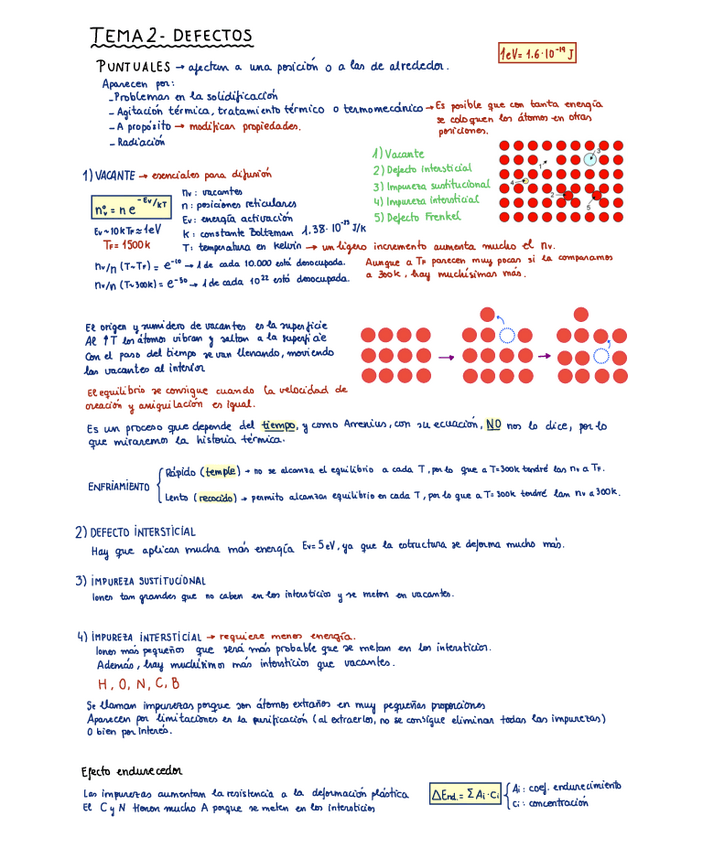 TEMA 2 - DEFECTOS
1eV = 1.6·10⁻¹⁹ J
PUNTUALES → afectan a una posición o a las de alrededor.
Aparecen por:
- Problemas en la solidificación
- Agitación térmica, tratamiento térmico o termomecánico → Es posible que con tanta energía
se coloquen los átomos en otras
posiciones.
- A propósito → modificar propiedades.
- Radiación
1) VACANTE → esenciales para difusión
nᵥ = n e^(-Eᵥ/kT)
nᵥ: vacantes
n: posiciones reticulares
Eᵥ: energía activación
K: constante Boltzman 1.38·10⁻²³ J/K
T: temperatura en Kelvin → un ligero incremento aumenta mucho el nᵥ.
Eᵥ ~ 10kT_F ≈ 1eV
T_F = 1500K
nᵥ/n (T~T_F) = e⁻¹⁰ → 1 de cada 10.000 está desocupada.
nᵥ/n (T~300K) = e⁻⁵⁰ → 1 de cada 10²² está desocupada.
Aunque a T_F parecen muy pocas si la comparamos
a 300K, hay muchísimas más.
1) Vacante
2) Defecto Intersticial
3) Impureza sustitucional
4) Impureza intersticial
5) Defecto Frenkel
1
2
3
4
5
El origen y sumidero de vacantes es la superficie
Al ↑T los átomos vibran y saltan a la superficie
Con el paso del tiempo se van llenando, moviendo
las vacantes al interior
El equilibrio se consigue cuando la velocidad de
creación y aniquilación es igual.
Es un proceso que depende del tiempo, y como Arrenius, con su ecuación, NO nos lo dice, por lo
que miraremos la historia térmica.
ENFRIAMIENTO
Rápido (temple) → no se alcanza el equilibrio a cada T, por lo que a T=300K tendré las nᵥ a T_F.
Lento (recocido) → permito alcanzar equilibrio en cada T, por lo que a T=300K tendré las nᵥ a 300K.
2) DEFECTO INTERSTICIAL
Hay que aplicar mucha más energía Eᵥ=5eV, ya que la estructura se deforma mucho más.
3) IMPUREZA SUSTITUCIONAL
Iones tan grandes que no caben en los intersticios y se meten en vacantes.
4) IMPUREZA INTERSTICIAL → requiere menos energía.
Iones más pequeños que será más probable que se metan en los intersticios.
Además, hay muchísimos más intersticios que vacantes.
H, O, N, C, B
Se llaman impurezas porque son átomos extraños en muy pequeñas proporciones
Aparecen por limitaciones en la purificación (al extraerlos, no se consigue eliminar todas las impurezas)
O bien por interés.
Efecto endurecedor
Las impurezas aumentan la resistencia a la deformación plástica
El C y N tienen mucho A porque se meten en los intersticios
ΔEnd. = Σ Aᵢ·Cᵢ
Aᵢ: coef. endurecimiento
cᵢ: concentración